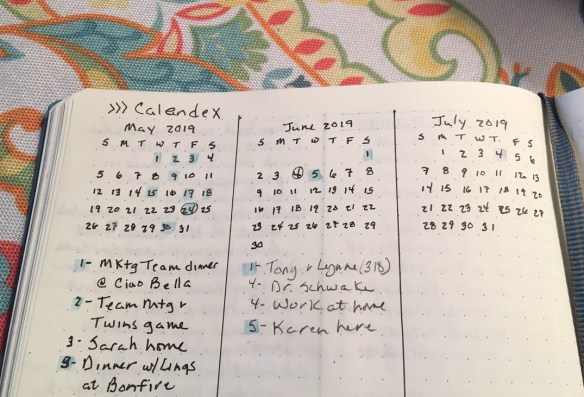 >>> Calendex
May 2019
S M T W T F S
1 2 3 4
5 6 7 8 9 10 11
12 13 14 15 16 17 18
19 20 21 22 23 24 25
26 27 28 29 30 31
1- Mktg Team dinner
@ Ciao Bella
2- Team mtg &
Twins game
3- Sarah home
9- Dinner w/Lings
at Bonfire
June 2019
S M T W T F S
1
2 3 4 5 6 7 8
9 10 11 12 13 14 15
16 17 18 19 20 21 22
23 24 25 26 27 28 29
30
1- Tony & Lynne (318)
4- Dr. Schwake
4- Work at home
5- Karen here
July 2019
S M T W T F S
1 2 3 4 5 6
7 8 9 10 11 12 13
14 15 16 17 18 19 20
21 22 23 24 25 26 27
28 29 30 31